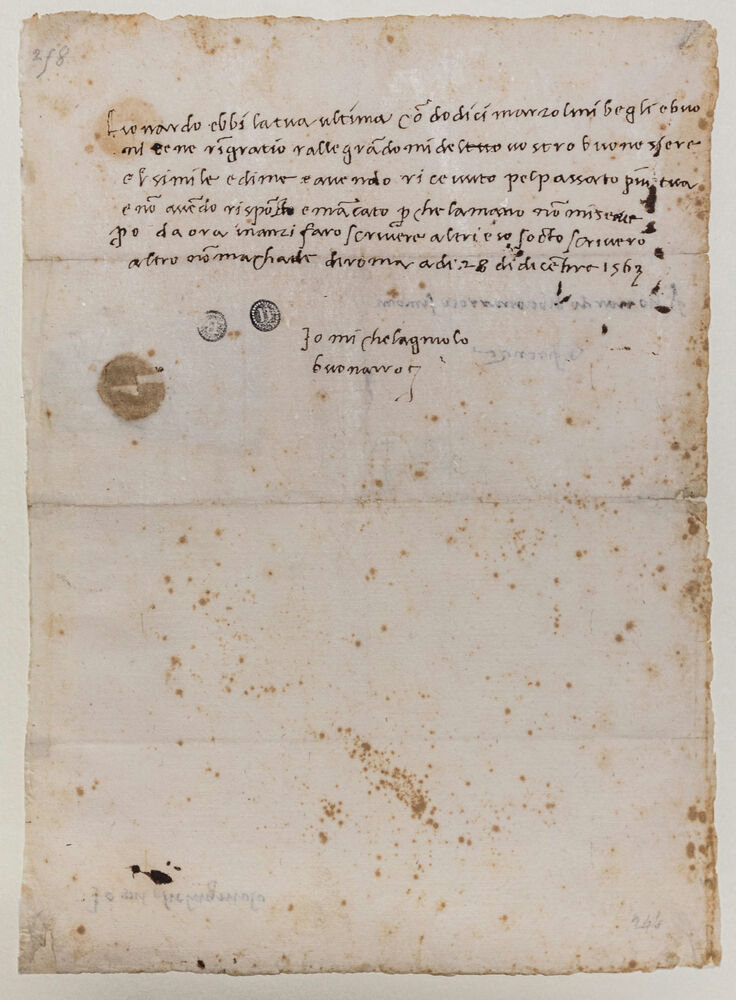 258
Lionardo ebbi la tua ultima cō dodici marzolini begli e buo
ni te ne rīgratio rallegrādomi del tuo vostro buono essere
el simile e di me e avendo ricevuto pel passato più tua
e nō avēdo risposto e mācato perche la mano nō mi serve
però da ora inanzi farò scrivere altri e io sottoscriverò
altro nō machade di roma a di 28 di dicēbre 1563
Io michelagniolo
buonarroti